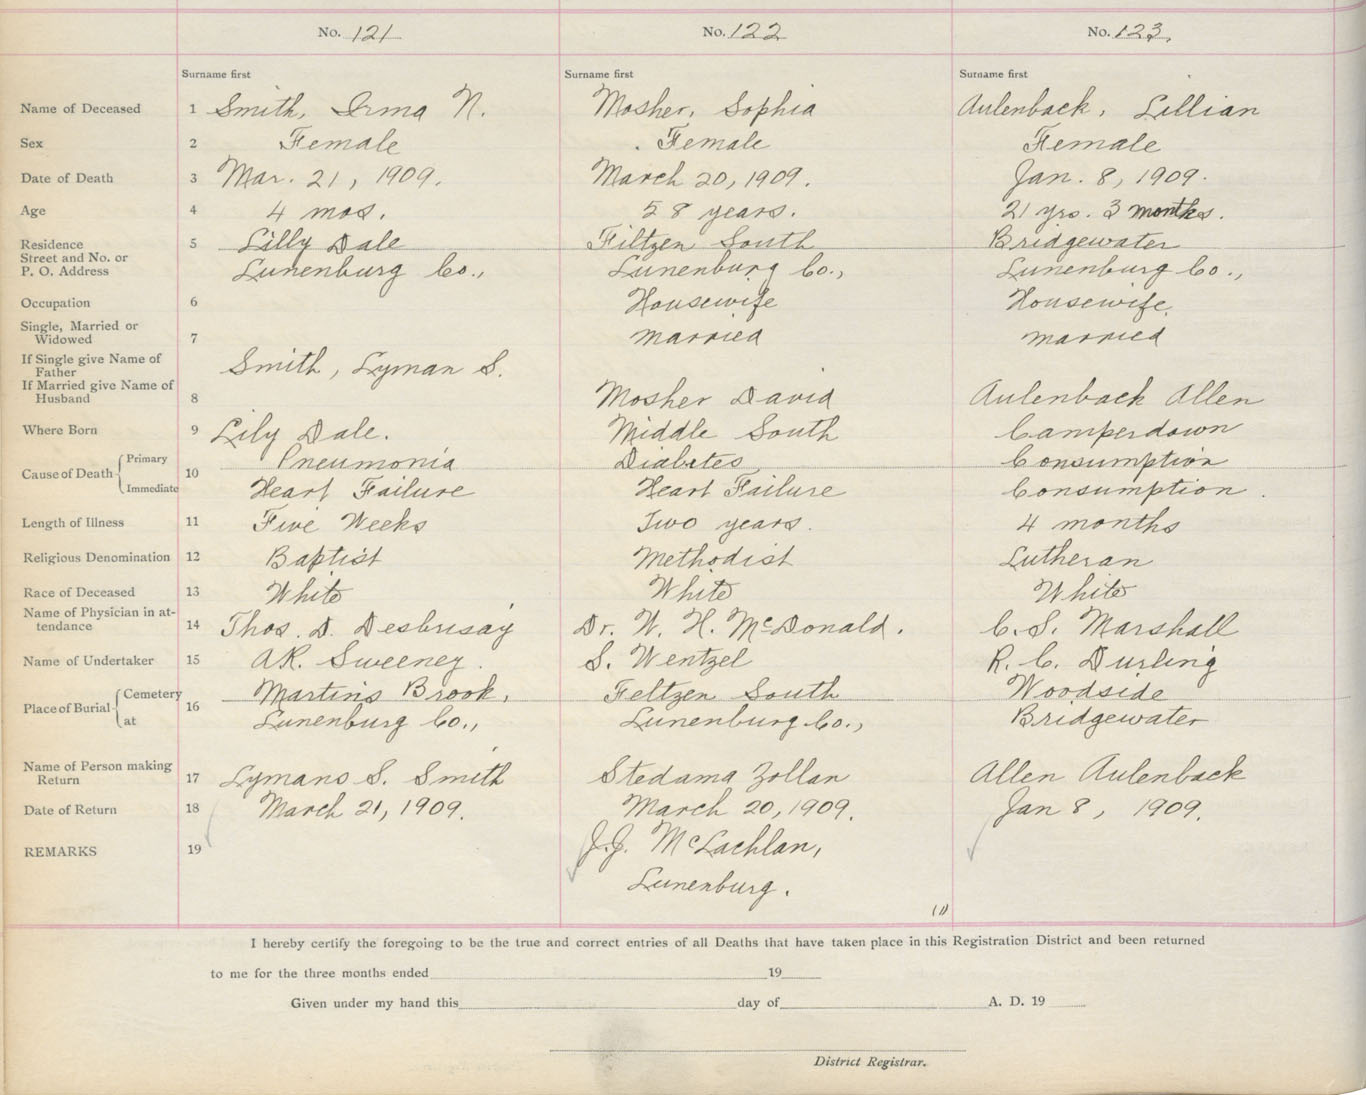 No. 121 No. 122 No. 123.
Surname first Surname first Surname first
Name of Deceased 1 Smith, Irma N. Mosher, Sophia Aulenback, Lillian
Sex 2 Female Female Female
Date of Death 3 Mar. 21, 1909. March 20, 1909. Jan. 8, 1909.
Age 4 4 mos. 58 years. 21 yrs. 3 months.
Residence 5 Lilly Dale Filtzen South Bridgewater
Street and No. or
P. O. Address Lunenburg Co., Lunenburg Co., Lunenburg Co.,
Occupation 6 Housewife Housewife.
Single, Married or
Widowed 7 married married
If Single give Name of
Father Smith, Lyman S.
If Married give Name of
Husband 8 Mosher David Aulenback Allen
Where Born 9 Lily Dale. Middle South Camperdown
Cause of Death Primary 10 Pneumonia Diabetes Consumption
Immediate Heart Failure Heart Failure Consumption.
Length of Illness 11 Five Weeks Two years. 4 months
Religious Denomination 12 Baptist Methodist Lutheran
Race of Deceased 13 White White White
Name of Physician in at-
tendance 14 Thos. D. Desbrisay Dr. W. H. McDonald. C. S. Marshall
Name of Undertaker 15 A.R. Sweeney. S. Wentzel R. C. Durling
Place of Burial Cemetery 16 Martins Brook, Feltzen South Woodside
at Lunenburg Co., Lunenburg Co., Bridgewater
Name of Person making
Return 17 Lymans S. Smith Stedama Zollan Allen Aulenback
Date of Return 18 March 21, 1909. March 20, 1909. Jan 8, 1909.
REMARKS 19 J.J. McLachlan,
Lunenburg.
(1)
I hereby certify the foregoing to be the true and correct entries of all Deaths that have taken place in this Registration District and been returned
to me for the three months ended 19
Given under my hand this day of A. D. 19
District Registrar.